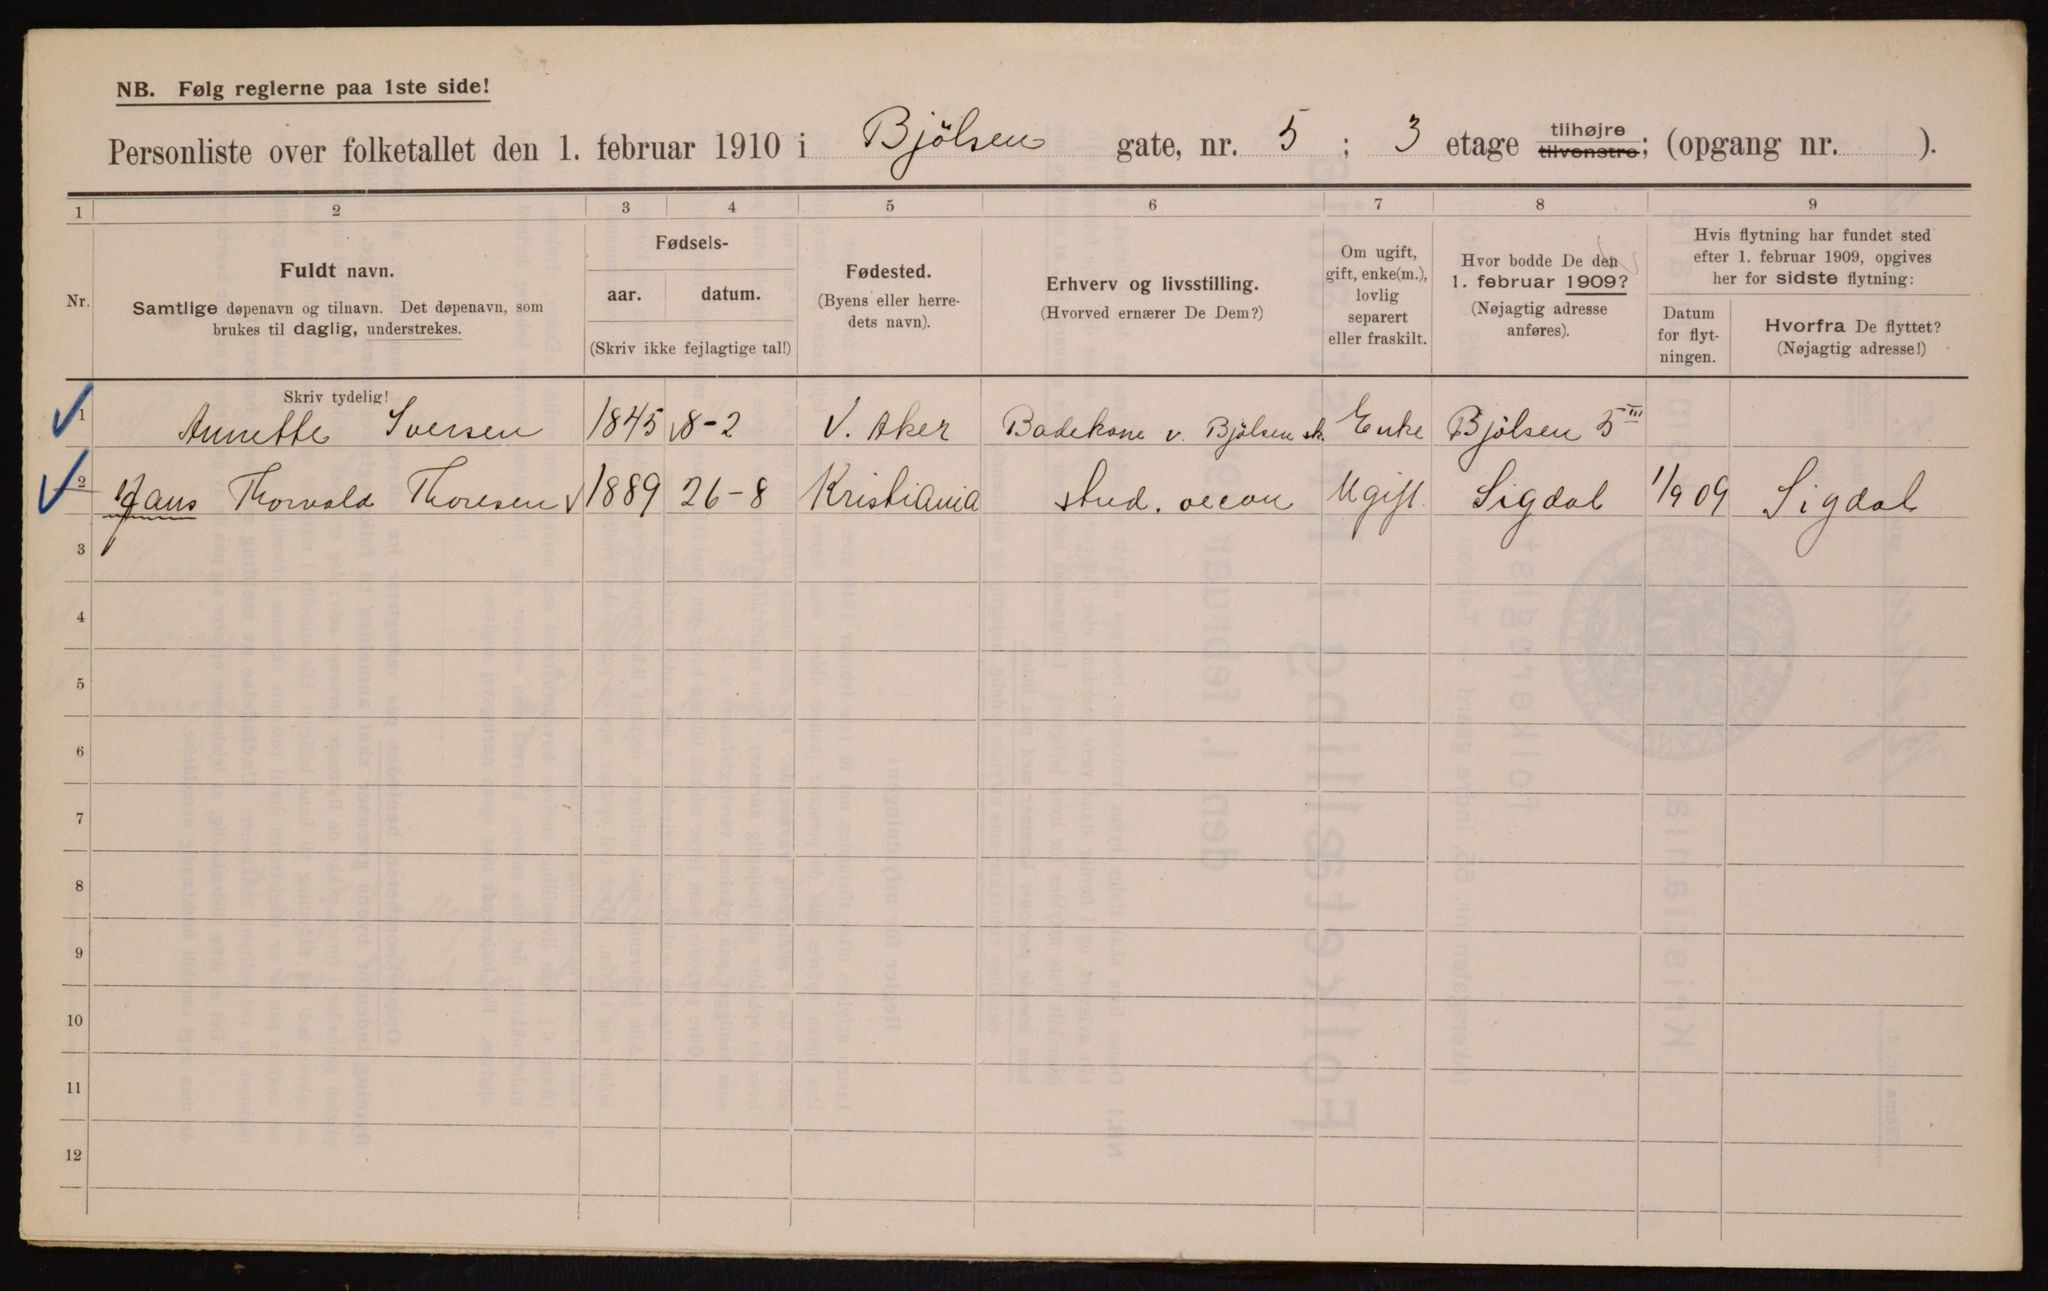 NB. Følg reglerne paa 1ste side!
Personliste over folketallet den 1. februar 1910 i Bjölsen gate, nr. 5; 3 etage tilhøjre tilvenstre; (opgang nr. ).
1 2 3 4 5 6 7 8 9
Nr.
Fuldt navn.
Samtlige døpenavn og tilnavn. Det døpenavn, som
brukes til daglig, understrekes.
Fødsels-
aar. datum.
(Skriv ikke fejlagtige tal!)
Fødested.
(Byens eller herre-
dets navn).
Erhverv og livsstilling.
(Hvorved ernærer De Dem?)
Om ugift,
gift, enke(m.),
lovlig
separert
eller fraskilt.
Hvor bodde De den
1. februar 1909?
(Nøjagtig adresse
anføres).
Hvis flytning har fundet sted
efter 1. februar 1909, opgives
her for sidste flytning:
Datum
for flyt-
ningen.
Hvorfra De flyttet?
(Nøjagtig adresse!)
Skriv tydelig!
1 Annette Iversen 1845 8-2 V. Aker Badekone v. Bjölsen sk. Enke Bjölsen 5 III
2 Hans Thorvald Thoresen 1889 26-8 Kristiania stud. oecon Ugift Sigdal 1/9 09 Sigdal
3
4
5
6
7
8
9
10
11
12